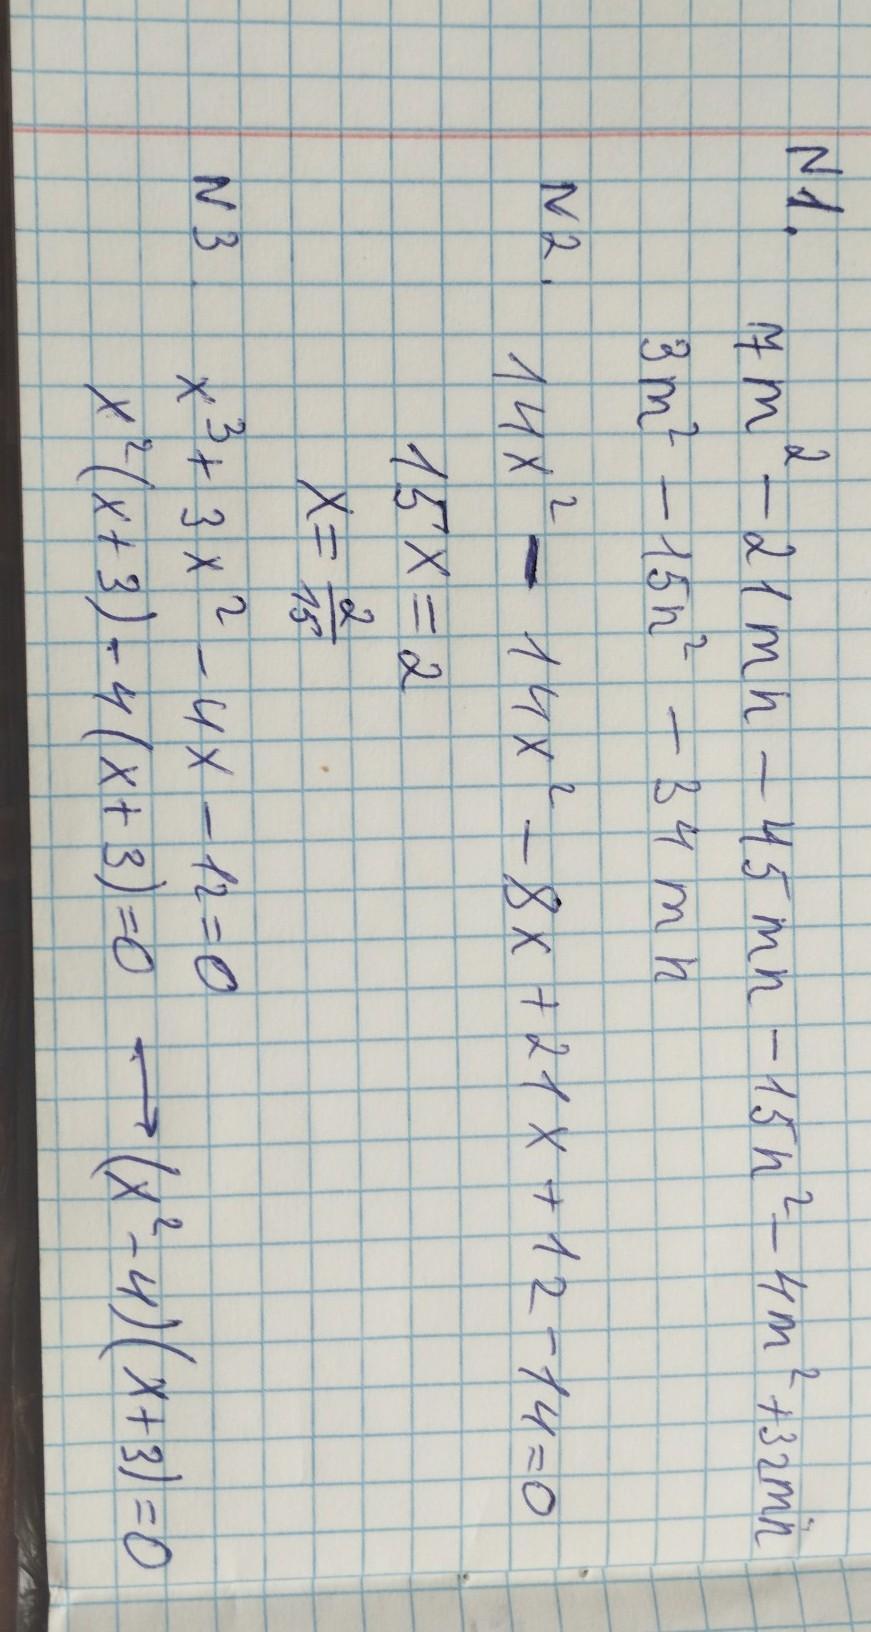 N1.
7m² - 21mn - 45mn - 15n² - 4m² + 32mn
3m² - 15n² - 34mn
N2.
14x² - 14x² - 8x + 21x + 12 - 14 = 0
15x = 2
x = 2/15
N3
x³ + 3x² - 4x - 12 = 0
x²(x + 3) - 4(x + 3) = 0 → (x² - 4)(x + 3) = 0